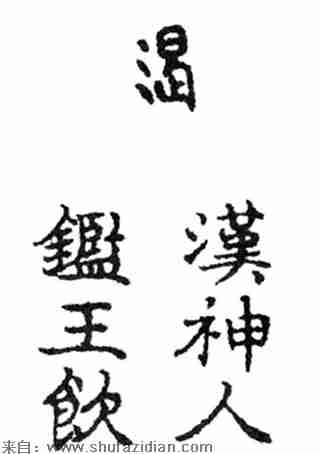 渴
漢神人
鑑王飲
来自：www.shufazidian.com